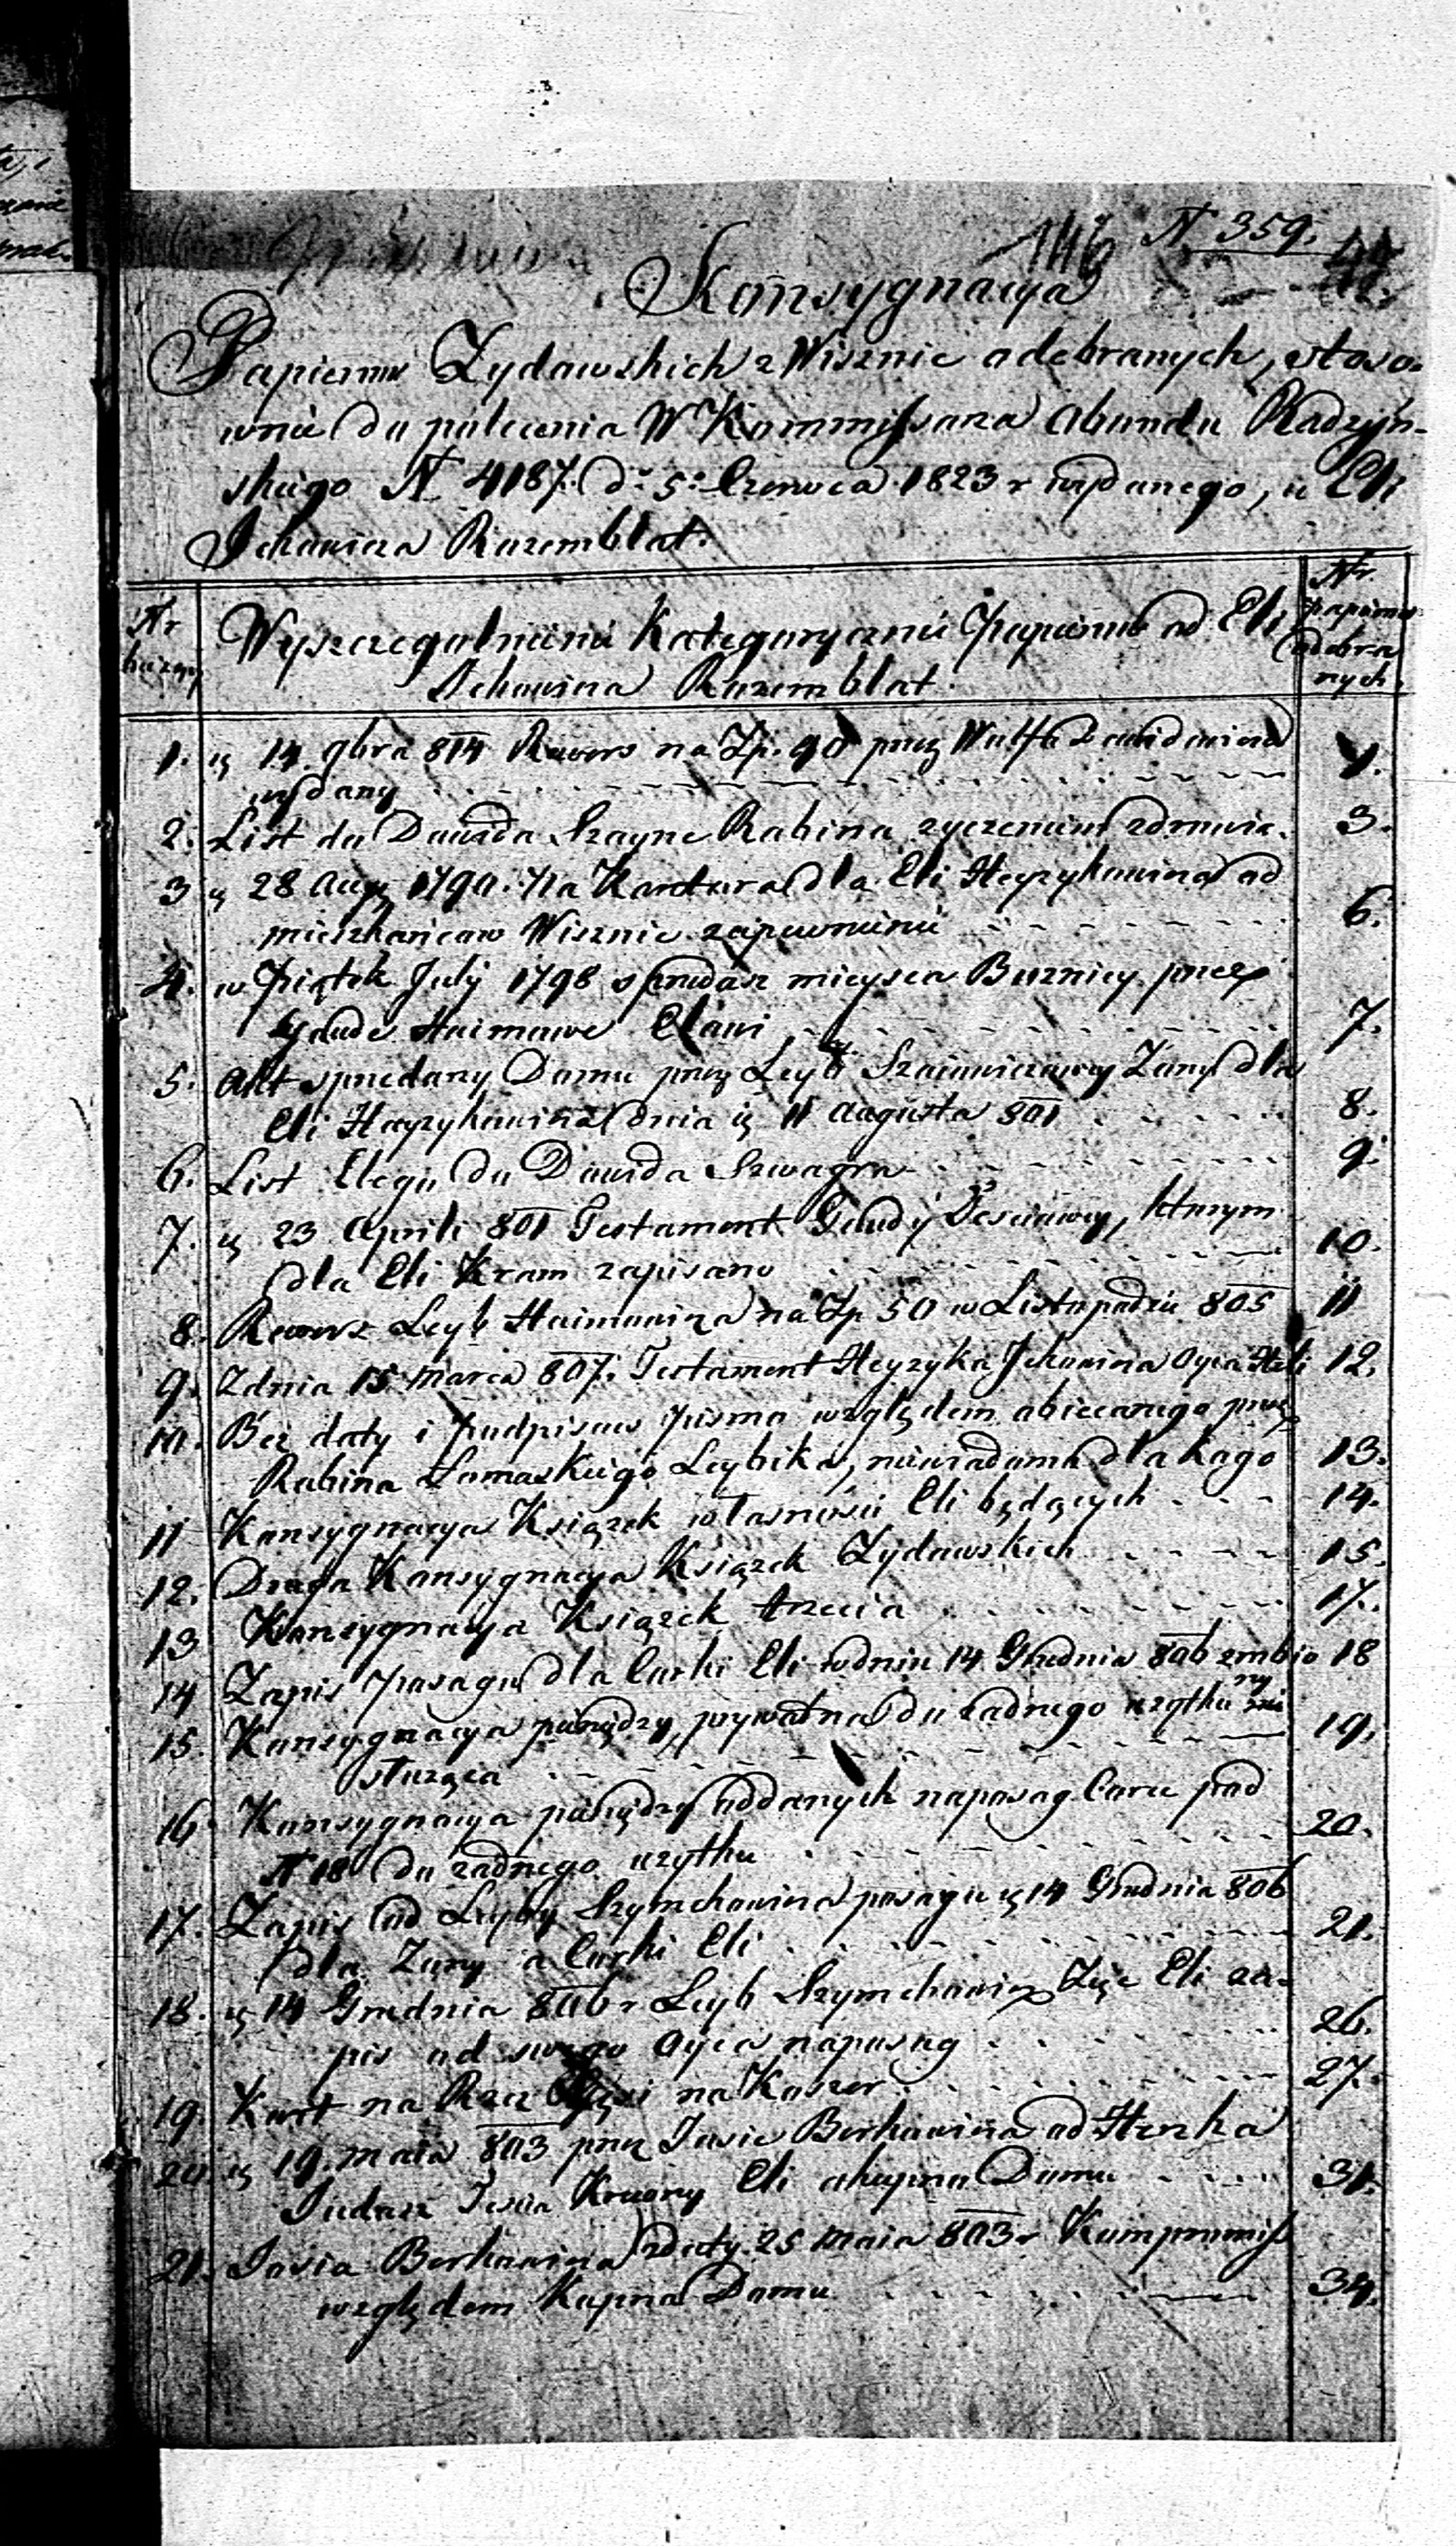 146 N 359.
Konsygnacya
Papierow Zydowskich z Wisznic odebranych, stoso-
wnie do polecenia W Kommissarza Obwodu Radzyń-
skiego N 4187. d. 5. Czerwca 1823 r wydanego, u Eli
Ickowicza Rozemblat.
Nr bieżący
Wyszczegolnienie Kategoryczne Papierow od Eli
Ickowicza Rozemblat.
Nr papierow odebranych
1. ą 14 gbra 814 Rewers na Zp. 90 przez Wolfa Dawidowicza 1.
wydany
2. List do Dawida Szayne Rabina zyczeniem zdrowia. 3.
3 ą 28 Aug 1790. na Kantora dla Eli Heyzykowicza od
mieszkańcow Wisznic zapewnienie 6.
4. w Piątek July 1798 sprzedasz mieysca Boznicy przez
Haimowe Elowi 7.
5. Akt sprzedany Domu przez Leyb Szaiowiczowey Zony dla
Eli Hayzykowicza dnia ą 11 Augusta 801 8.
6. List Elego do Dawida Szwagra 9.
7. ą 23 Aprili 801 Testament Gaudy Teściowey, ktorym
dla Eli Kram zapisano 10.
8. Rewers Leyb Haimowicza na Zp 50 w Listopadzie 805 11
9. Zdnia 15 Marca 807. Testament Heyzyka Ickowicza Oyca Heli 12.
10. Bez daty i podpisow Pismo względem obiecanego przez
Rabina Lomaskiego Leybika, niewiadomo dla kogo 13.
11 Konsygnacya Książek własnościa Eli będących 14.
12. Druga Konsygnacya Książek Zydowskich 15.
13 Konsygnacya Książek trzecia 17.
14 Zapis posagu dla Corki Eli w dniu 14 Grudnia 806 18
15. Konsygnacya pieniędzy prywatna do zadnego uzytku nie
służąca 19.
16 Konsygnacya pieniędzy oddanych na posag Corce pod
N 18 do zadnego uzytku 20.
17. Zapis od Leyby Szymchowicza posagu ą 14 Grudnia 806
dla Zony a Corki Eli 21.
18. ą 14 Grudnia 806 r Leyb Szymchowicz Zięc Eli za-
pis od swego Oyca na posag 26.
19. Kwit na Rzecz na Koszer 27.
20 ą 19. Maia 803 przez Josie Berkowicza od Herszka
Judasz Teścia Krewny Eli okupna Domu 31.
21. Josia Berkowicza z daty 25 Maia 803 r Kompromiss
względem Kupna Domu 34.